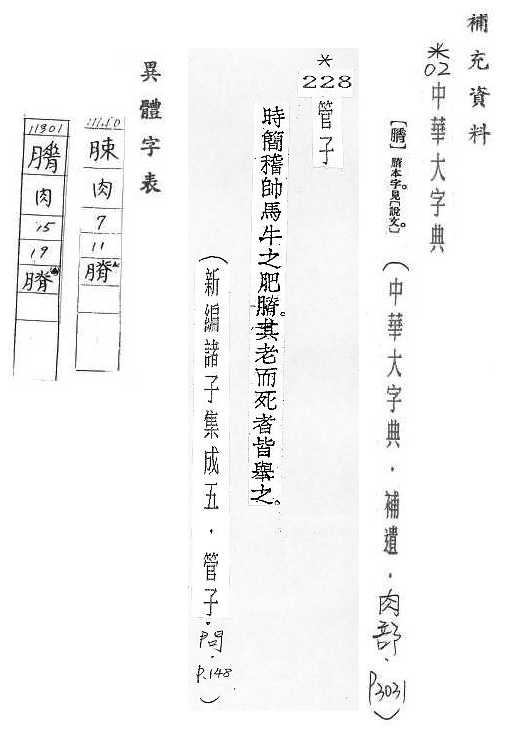 補充資料
*02 中華大字典
【膌】膌本字。見[說文]。
(中華大字典.補遺.肉部.P3031)
*228 管子
時簡稽帥馬牛之肥膌。其老而死者皆舉之。
(新編諸子集成五.管子.問.P.148)
異體字表
肉
7
11
膌
11901
肉
15
19
膌